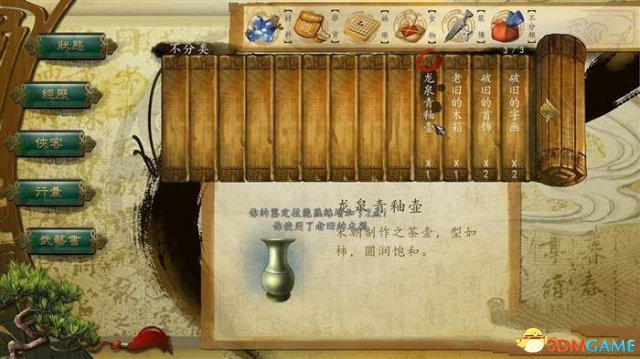 材料
雜貨
娛樂
食物
裝備
不分類
不分类
3/3
狀態
經歷
俠客
行囊
武藝書
破旧的字画 X2
破旧的首饰 X2
老旧的木箱 X1
龙泉青釉壶 X1
龙泉青釉壶
你使用了老旧的木箱
宋朝制作之茶壶，型如
柿，圆润饱和。
3DMGAME